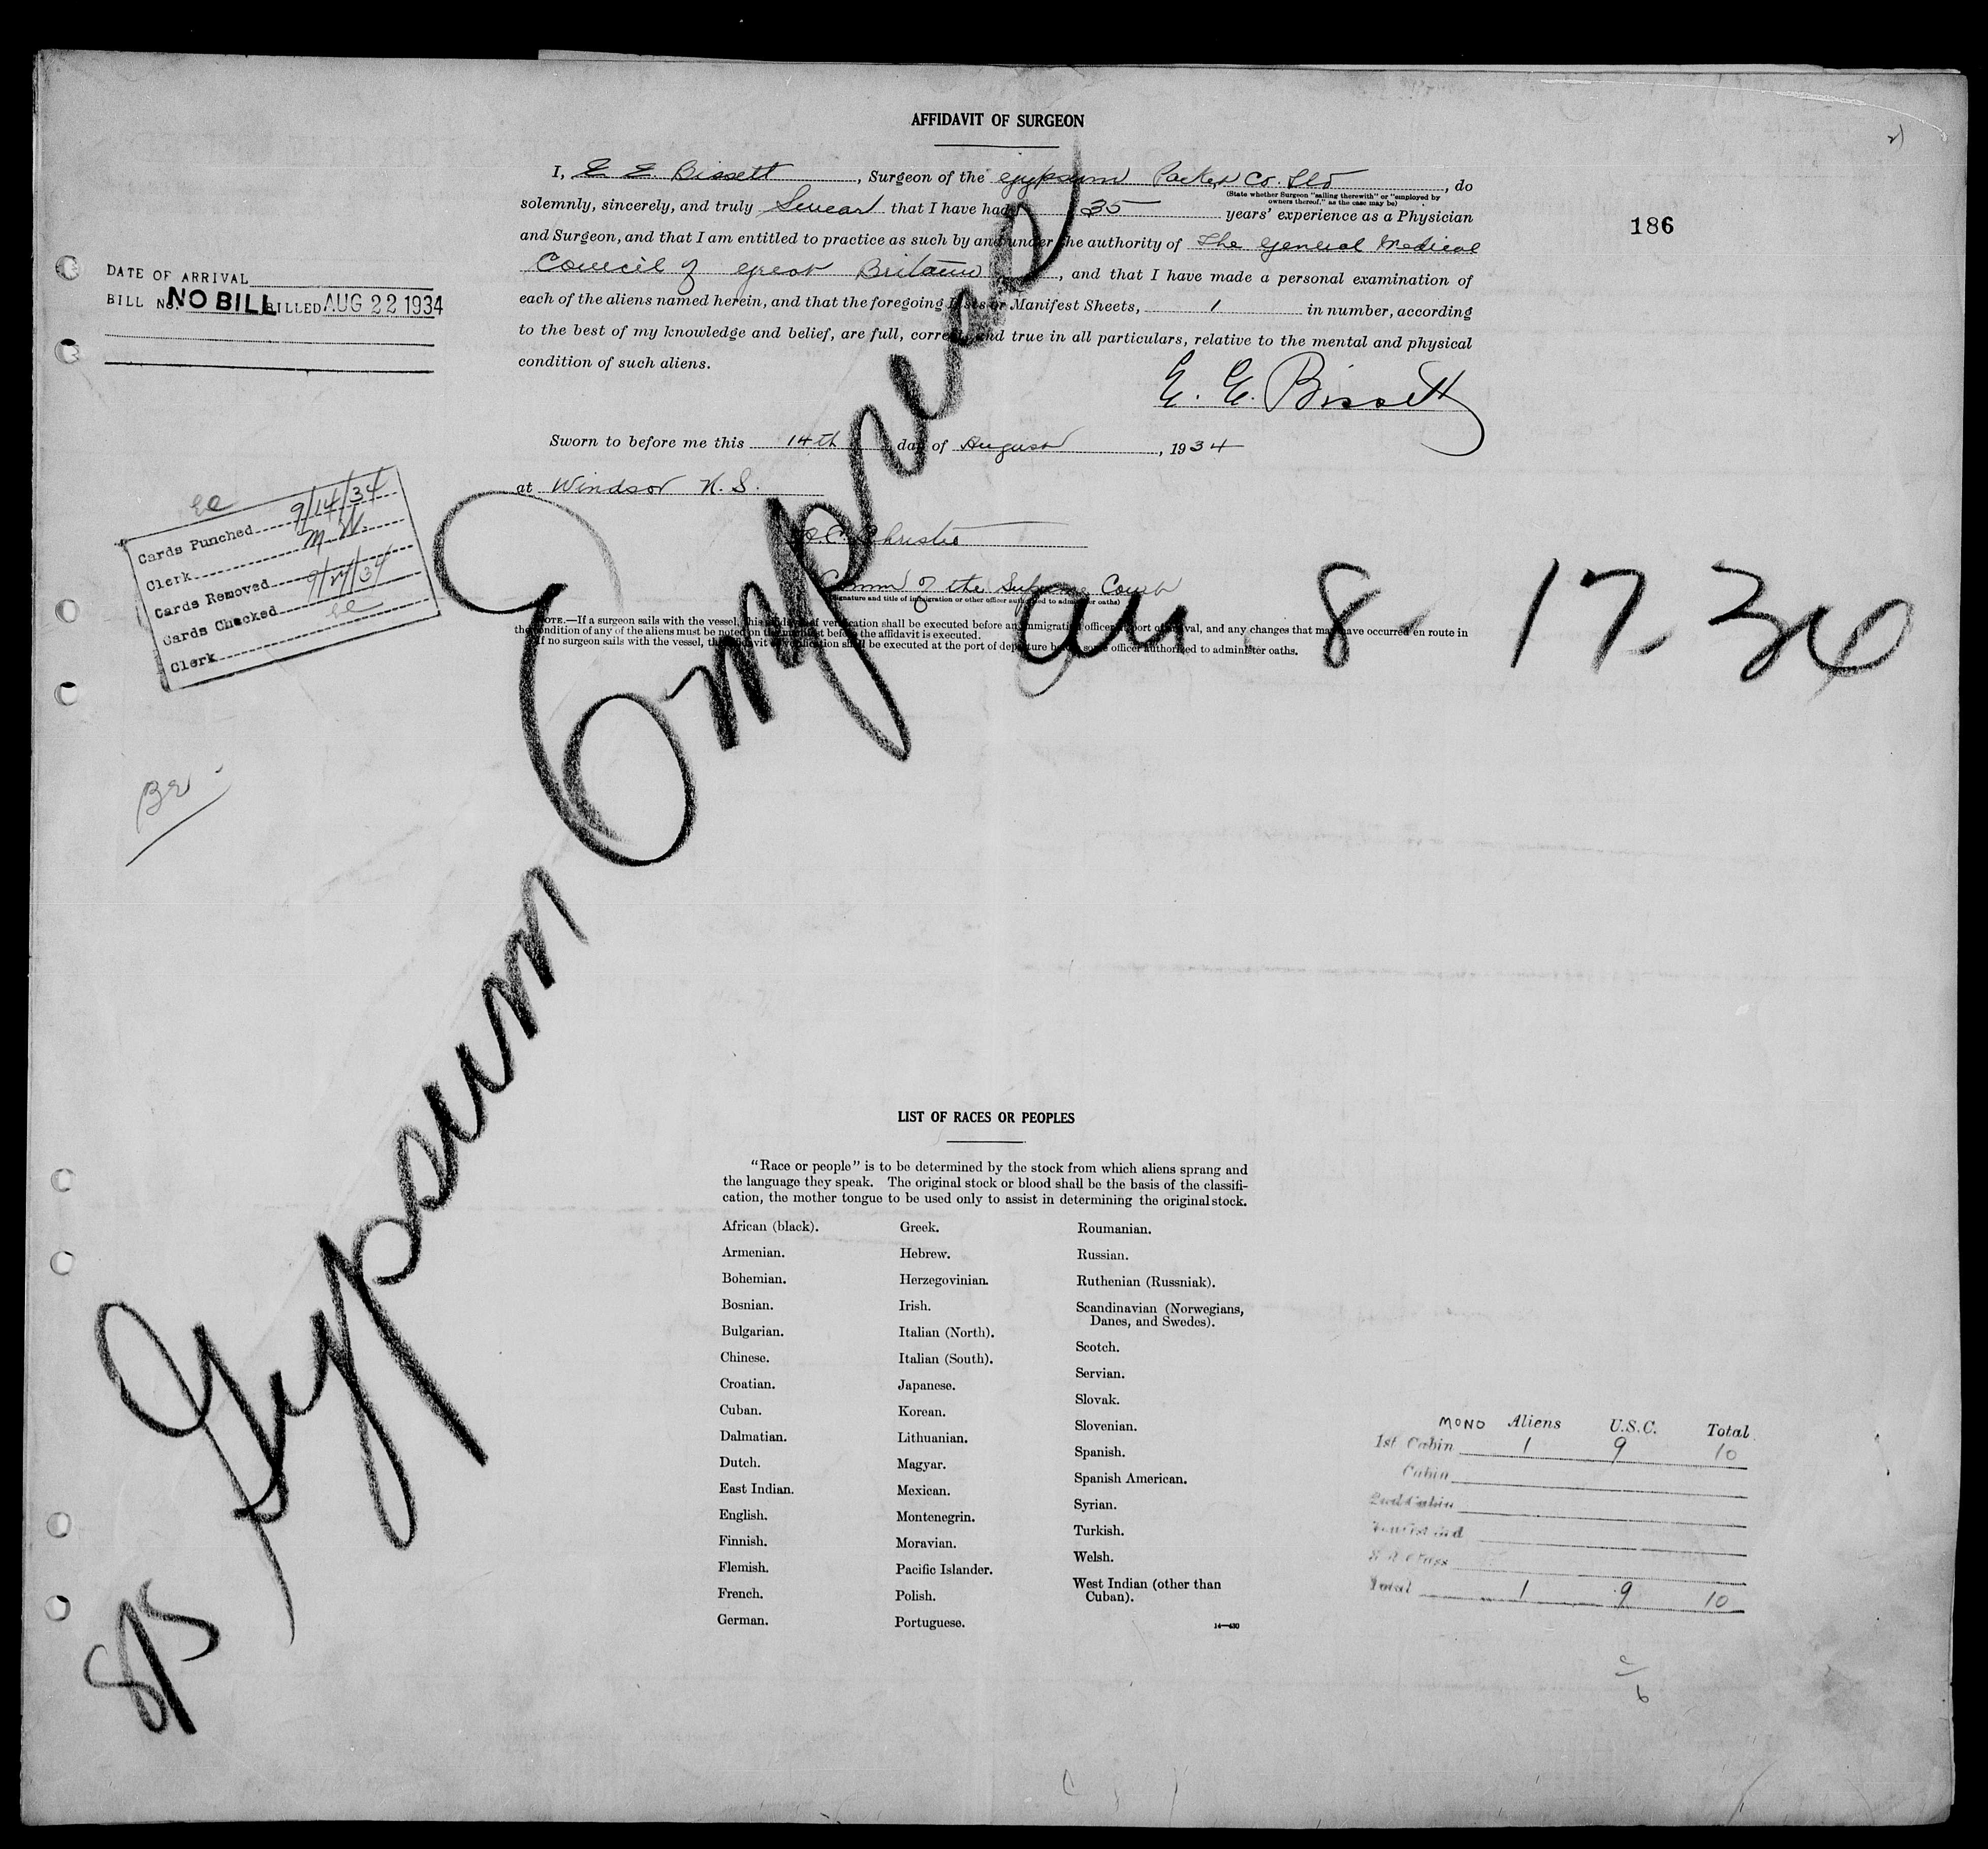 AFFIDAVIT OF SURGEON
I, E. E. Bissett, Surgeon of the Gypsum Packet Co. Ltd, do
(State whether Surgeon "sailing therewith" or "employed by
owners thereof," as the case may be)
solemnly, sincerely, and truly Swear that I have had 35 years' experience as a Physician
and Surgeon, and that I am entitled to practice as such by and under the authority of The General Medical
Council of Great Britain, and that I have made a personal examination of
each of the aliens named herein, and that the foregoing Lists or Manifest Sheets, 1 in number, according
to the best of my knowledge and belief, are full, correct, and true in all particulars, relative to the mental and physical
condition of such aliens.
E. E. Bissett
Sworn to before me this 14th day of August, 1934
at Windsor N.S.
Christie
Comm of the Supreme Court
(Signature and title of immigration or other officer authorized to administer oaths)
NOTE.—If a surgeon sails with the vessel, this affidavit of verification shall be executed before an immigration officer at port of arrival, and any changes that may have occurred en route in
the condition of any of the aliens must be noted on the manifest before the affidavit is executed.
If no surgeon sails with the vessel, the affidavit of verification shall be executed at the port of departure before some officer authorized to administer oaths.
186
DATE OF ARRIVAL
BILL No. NO BILL BILLED AUG 22 1934
Cards Punched 9/14/34
Clerk M.W.
Cards Removed
Cards Checked
Clerk
Gypsum Empress
8-17-34
LIST OF RACES OR PEOPLES
"Race or people" is to be determined by the stock from which aliens sprang and
the language they speak. The original stock or blood shall be the basis of the classifi-
cation, the mother tongue to be used only to assist in determining the original stock.
African (black).
Armenian.
Bohemian.
Bosnian.
Bulgarian.
Chinese.
Croatian.
Cuban.
Dalmatian.
Dutch.
East Indian.
English.
Finnish.
Flemish.
French.
German.
Greek.
Hebrew.
Herzegovinian.
Irish.
Italian (North).
Italian (South).
Japanese.
Korean.
Lithuanian.
Magyar.
Mexican.
Montenegrin.
Moravian.
Pacific Islander.
Polish.
Portuguese.
Roumanian.
Russian.
Ruthenian (Russniak).
Scandinavian (Norwegians,
Danes, and Swedes).
Scotch.
Servian.
Slovak.
Slovenian.
Spanish.
Spanish American.
Syrian.
Turkish.
Welsh.
West Indian (other than
Cuban).
MONO Aliens U.S.C. Total
1st Cabin 1 9 10
Cabin
2nd Cabin
Total 1 9 10